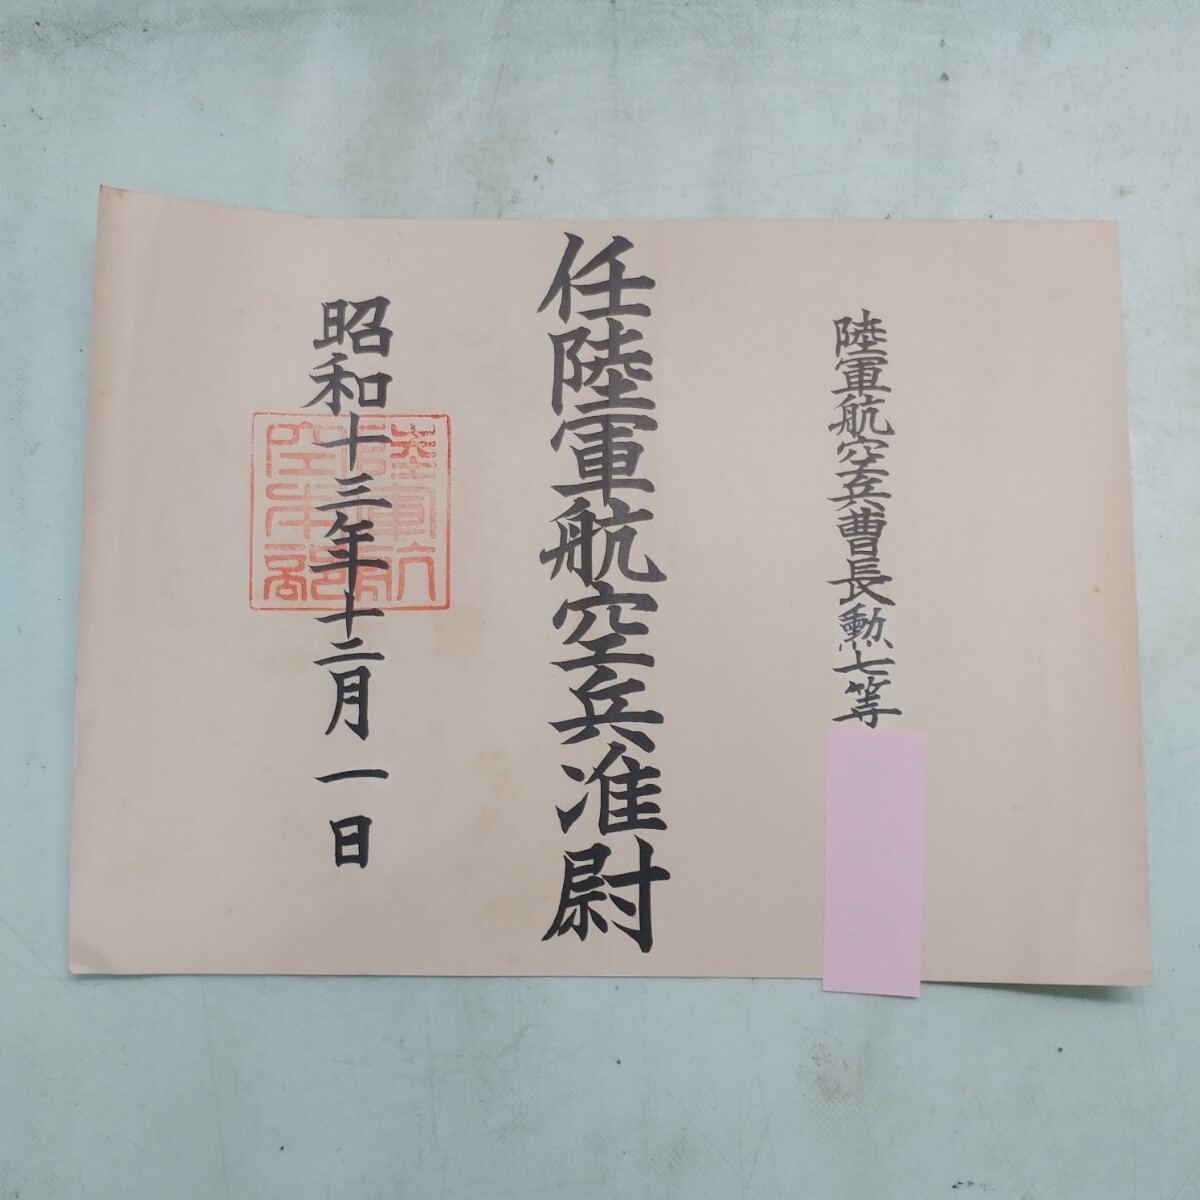 陸軍航空兵曹長勲七等
任陸軍航空兵准尉
昭和十三年十二月一日
陸軍航
空本部